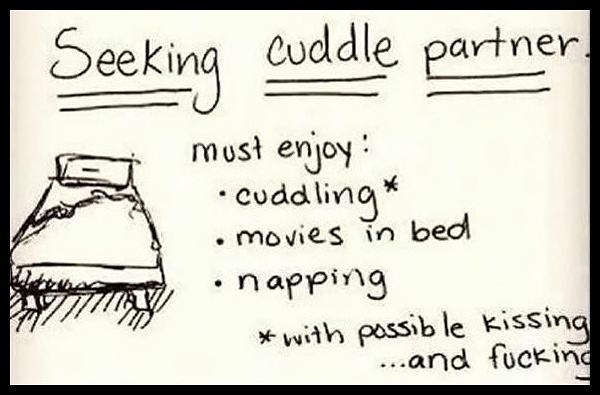 Seeking cuddle partner.
must enjoy:
• cuddling*
• movies in bed
• napping
*with possible kissing
...and fucking